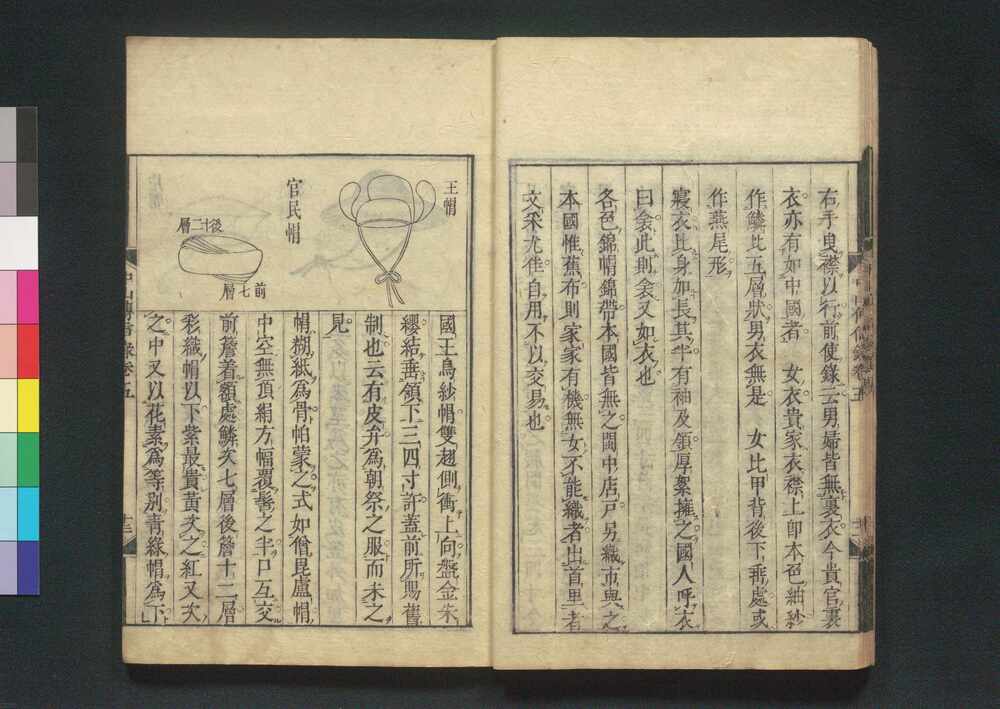 右手曳襟以行前使錄云男婦皆無裏衣今貴官裏
衣亦有如中國者 女衣貴家衣襟上卽本色紬紗
作鱗比五層狀男衣無是 女比甲背後下垂處或
作燕尾形
寢衣比身加長其半有袖及領厚絮擁之國人呼衣
曰衾此則衾又如衣也
各色錦帽錦帶本國皆無之閩中店戶另織市與之
本國惟蕉布則家家有機無女不能織者出首里者
文采尤佳自用不以交易也
王帽
官民帽
後十二層
前七層
國王烏紗帽雙翅側衝上向盤金朱
纓結垂頷下三四寸許蓋前所賜舊
制也云有皮弁爲朝祭之服而未之
見
帽糊紙爲骨帕蒙之式如僧毘盧帽
中空無頂絹方幅覆髻之半口互交
前簷着額處鱗次七層後簷十二層
彩織帽以下紫最貴黃次之紅又次
之中又以花素爲等別青綠帽爲下
中山傳信錄卷五
十三